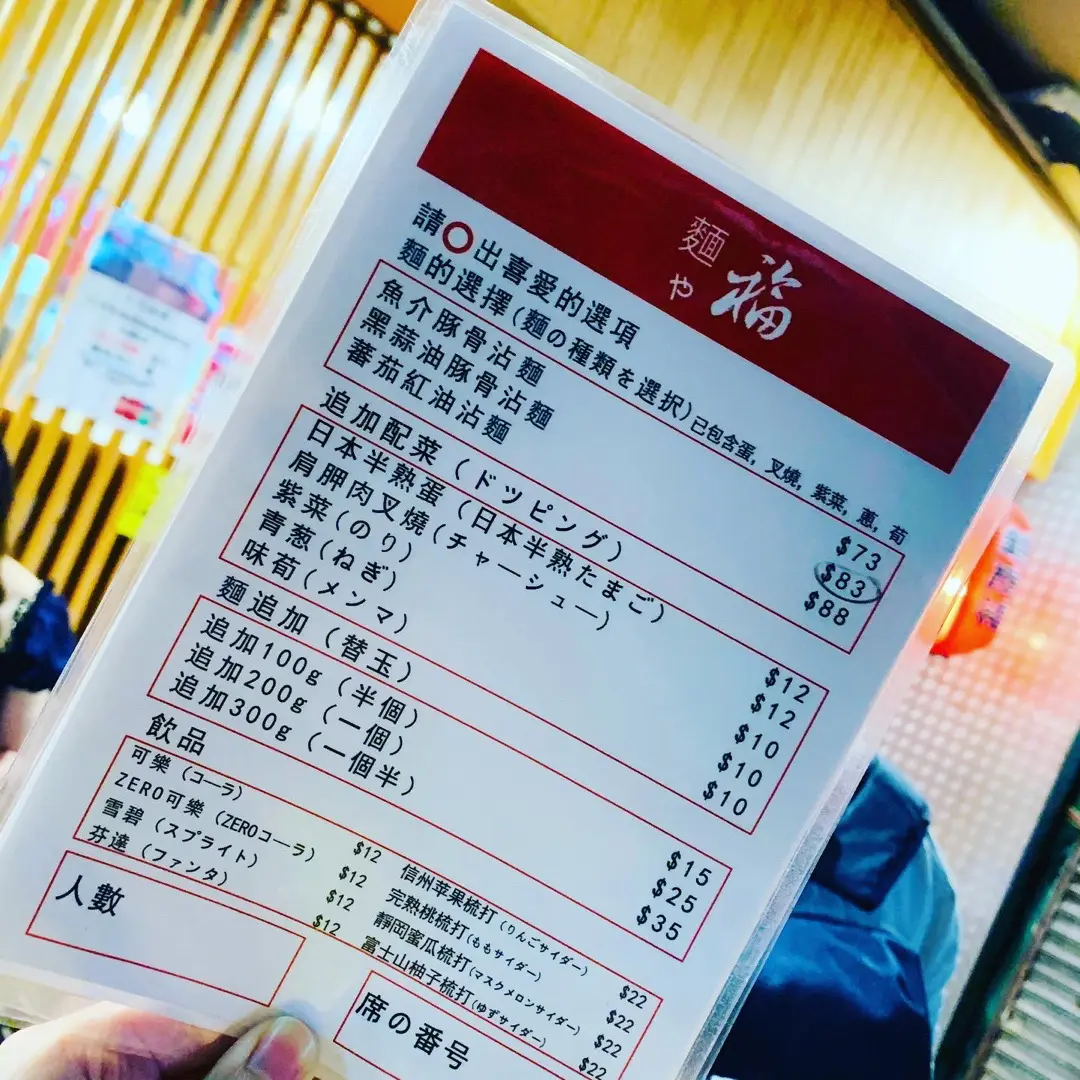 麵や 福
請〇出喜愛的選項
麵的選擇(麵の種類を選択)已包含蛋, 叉燒, 紫菜, 蔥, 荀
魚介豚骨沾麵 $73
黑蒜油豚骨沾麵 $83
蕃茄紅油沾麵 $88
追加配菜 (ドツピング)
日本半熟蛋 (日本半熟たまご) $12
肩胛肉叉燒(チャーシュー) $12
紫菜(のり) $10
青葱(ねぎ) $10
味荀(メンマ) $10
麵追加 (替玉)
追加100g (半個) $15
追加200g (一個) $25
追加300g (一個半) $35
飲品
可樂 (コーラ) $12 信州苹果梳打(りんごサイダー) $22
ZERO可樂 (ZEROコーラ) $12 完熟桃梳打(ももサイダー) $22
雪碧 (スプライト) $12 靜岡蜜瓜梳打(マスクメロンサイダー) $22
芬達 (ファンタ) $12 富士山柚子梳打(ゆずサイダー) $22
人數
席の番号